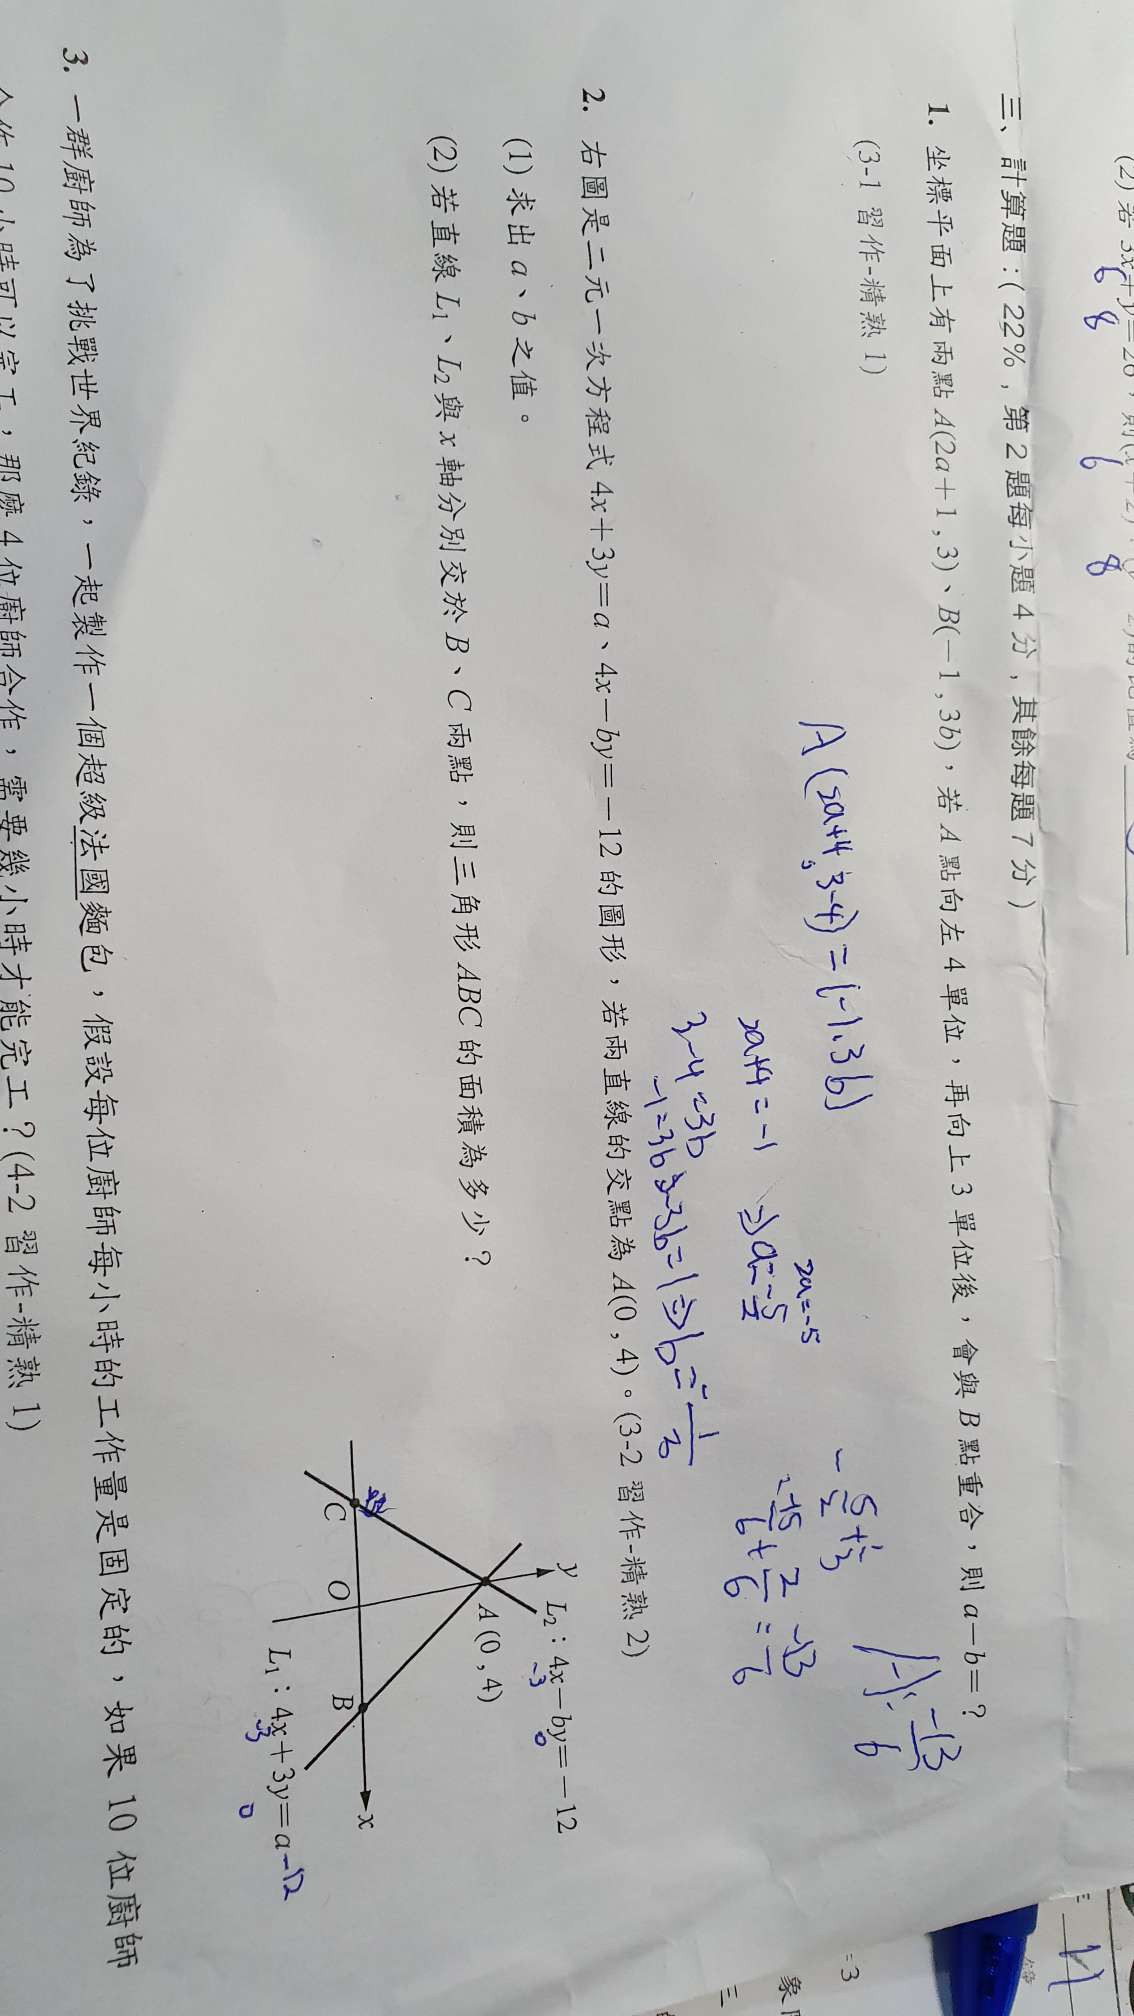 (2) 若 3x+y=26,則(x+2):(y-2)的比值為
6 8 6 8
三、計算題:(22%,第2題每小題4分,其餘每題7分)
1. 坐標平面上有兩點A(2a+1,3)、B(-1,3b),若A點向左4單位,再向上3單位後,會與B點重合,則a-b=?
(3-1 習作-精熟1)
A(2a+4,3-4)=(-1,3b)
2a+4=-1
2a=-5
⇒a=-5/2
3-4=3b
-1=3b⇒-3b=1⇒b=-1/3
-5/2+1/3
=-15/6+2/6=-13/6
A:-13/6
2. 右圖是二元一次方程式4x+3y=a、4x-by=-12的圖形,若兩直線的交點為A(0,4)。(3-2 習作-精熟2)
(1) 求出a、b之值。
(2) 若直線L₁、L₂與x軸分別交於B、C兩點,則三角形ABC的面積為多少?
y
L₂:4x-by=-12
-3 0
A(0,4)
C
O
B
x
L₁:4x+3y=a-12
-3 0
3. 一群廚師為了挑戰世界紀錄,一起製作一個超級法國麵包,假設每位廚師每小時的工作量是固定的,如果10位廚師
合作10小時可以完工,那麼4位廚師合作,需要幾小時才能完工?(4-2 習作-精熟1)
=3
三